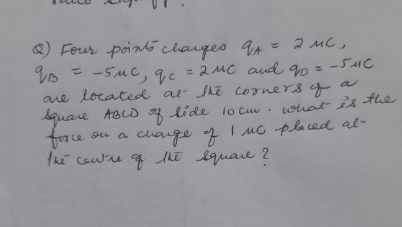 Q) Four points charges qA = 2 μC,
qB = -5μC, qC = 2μC and qD = -5μC
are located at the corners of a
square ABCD of side 10cm. what is the
force on a charge of 1 μC placed at
the centre of the square?